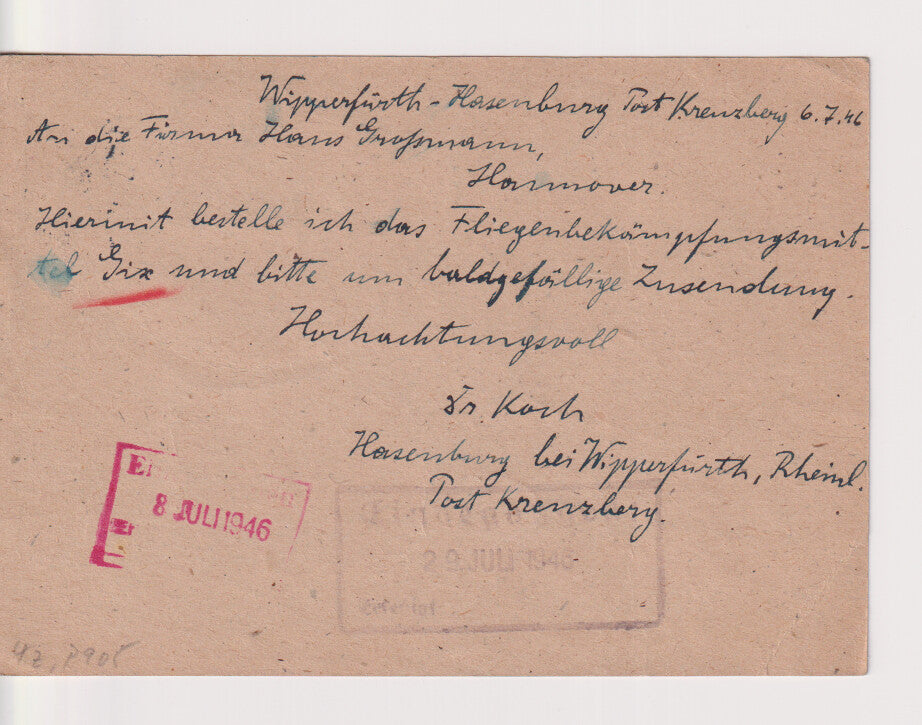 Wipperfürth-Hasenburg Post Kreuzberg 6.7.46
An die Firma Hans Großmann,
Hannover.
Hiermit bestelle ich das Fliegenbekämpfungsmit-
tel Gix und bitte um baldgefällige Zusendung.
Hochachtungsvoll
Dr. Koch
Hasenburg bei Wipperfürth, Rheinl.
Post Kreuzberg.
8 JULI 1946
29. JULI 1946